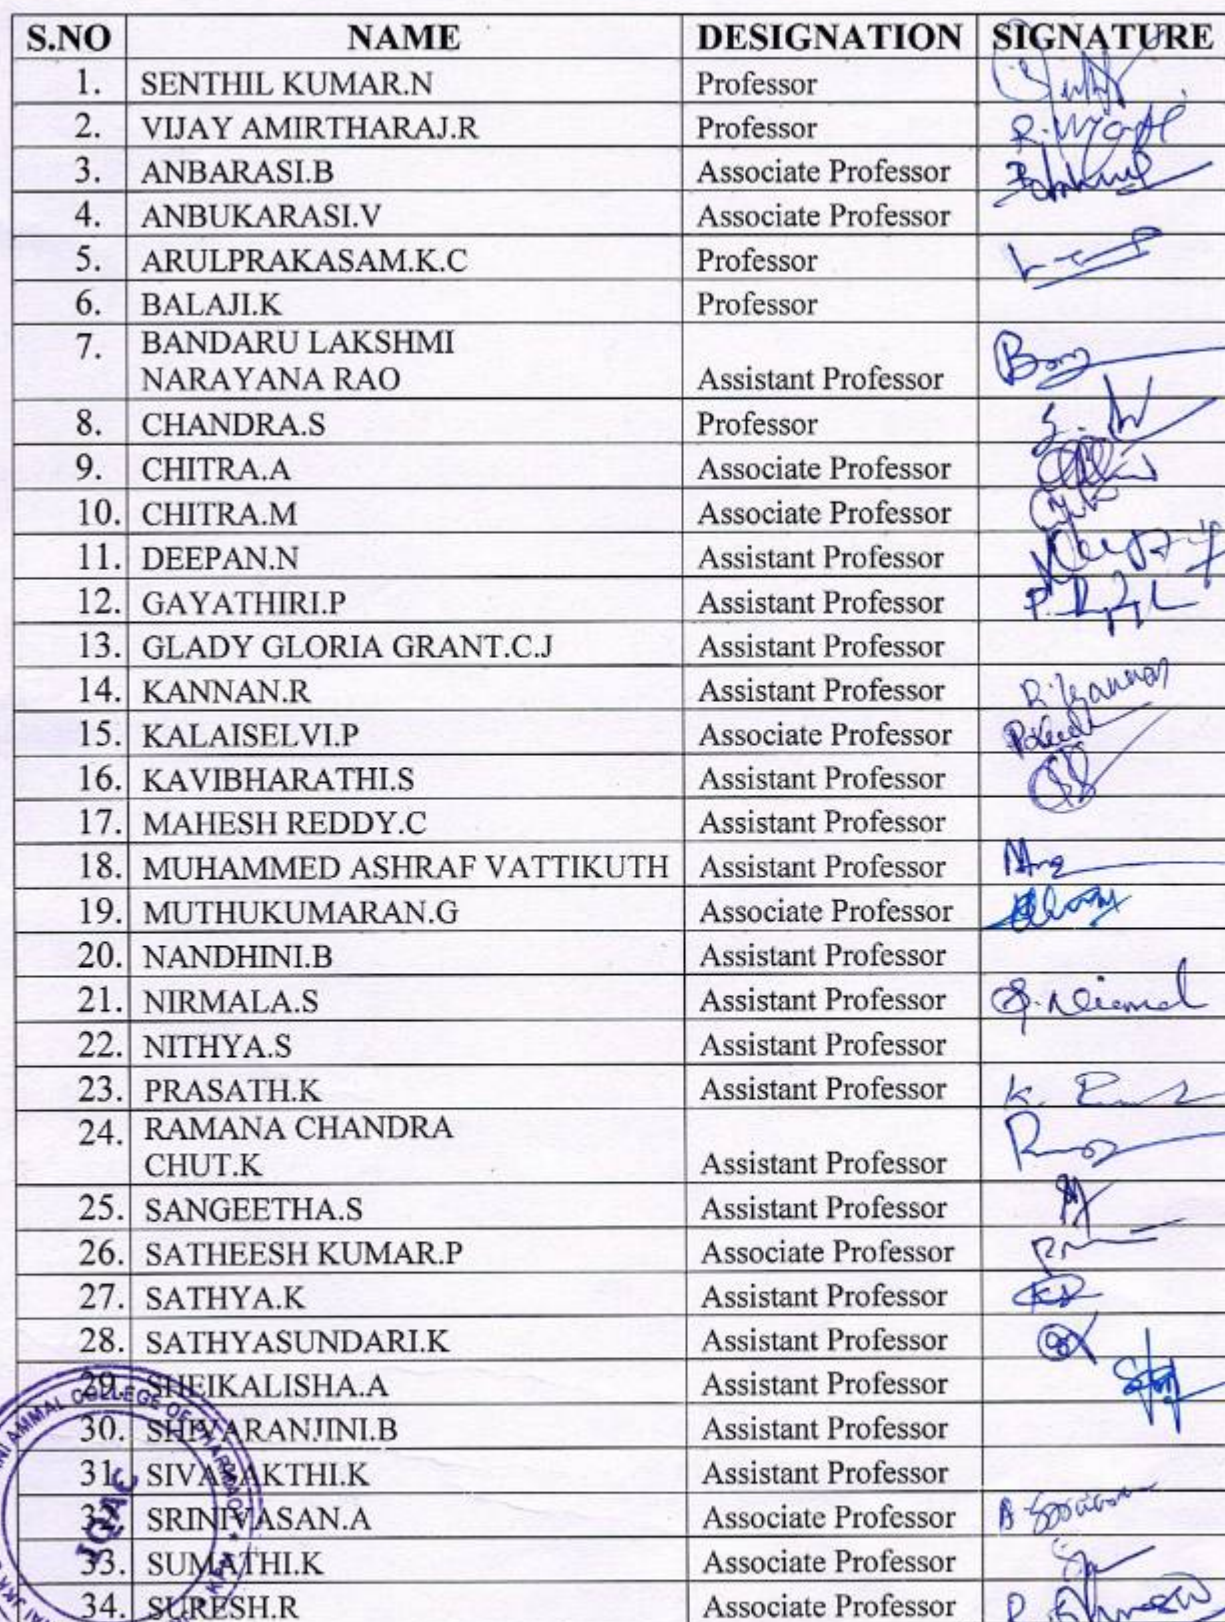 S.NO NAME DESIGNATION SIGNATURE
1. SENTHIL KUMAR.N Professor
2. VIJAY AMIRTHARAJ.R Professor
3. ANBARASI.B Associate Professor
4. ANBUKARASI.V Associate Professor
5. ARULPRAKASAM.K.C Professor
6. BALAJI.K Professor
7. BANDARU LAKSHMI
NARAYANA RAO Assistant Professor
8. CHANDRA.S Professor
9. CHITRA.A Associate Professor
10. CHITRA.M Associate Professor
11. DEEPAN.N Assistant Professor
12. GAYATHIRI.P Assistant Professor
13. GLADY GLORIA GRANT.C.J Assistant Professor
14. KANNAN.R Assistant Professor R. Kannan
15. KALAISELVI.P Associate Professor
16. KAVIBHARATHI.S Assistant Professor
17. MAHESH REDDY.C Assistant Professor
18. MUHAMMED ASHRAF VATTIKUTH Assistant Professor
19. MUTHUKUMARAN.G Associate Professor
20. NANDHINI.B Assistant Professor
21. NIRMALA.S Assistant Professor
22. NITHYA.S Assistant Professor
23. PRASATH.K Assistant Professor
24. RAMANA CHANDRA
CHUT.K Assistant Professor
25. SANGEETHA.S Assistant Professor
26. SATHEESH KUMAR.P Associate Professor
27. SATHYA.K Assistant Professor
28. SATHYASUNDARI.K Assistant Professor
29. SHEIKALISHA.A Assistant Professor
30. SHIVARANJINI.B Assistant Professor
31. SIVASAKTHI.K Assistant Professor
32. SRINIVASAN.A Associate Professor
33. SUMATHI.K Associate Professor
34. SURESH.R Associate Professor
AMMAL COLLEGE OF PHARMACY
IQAC